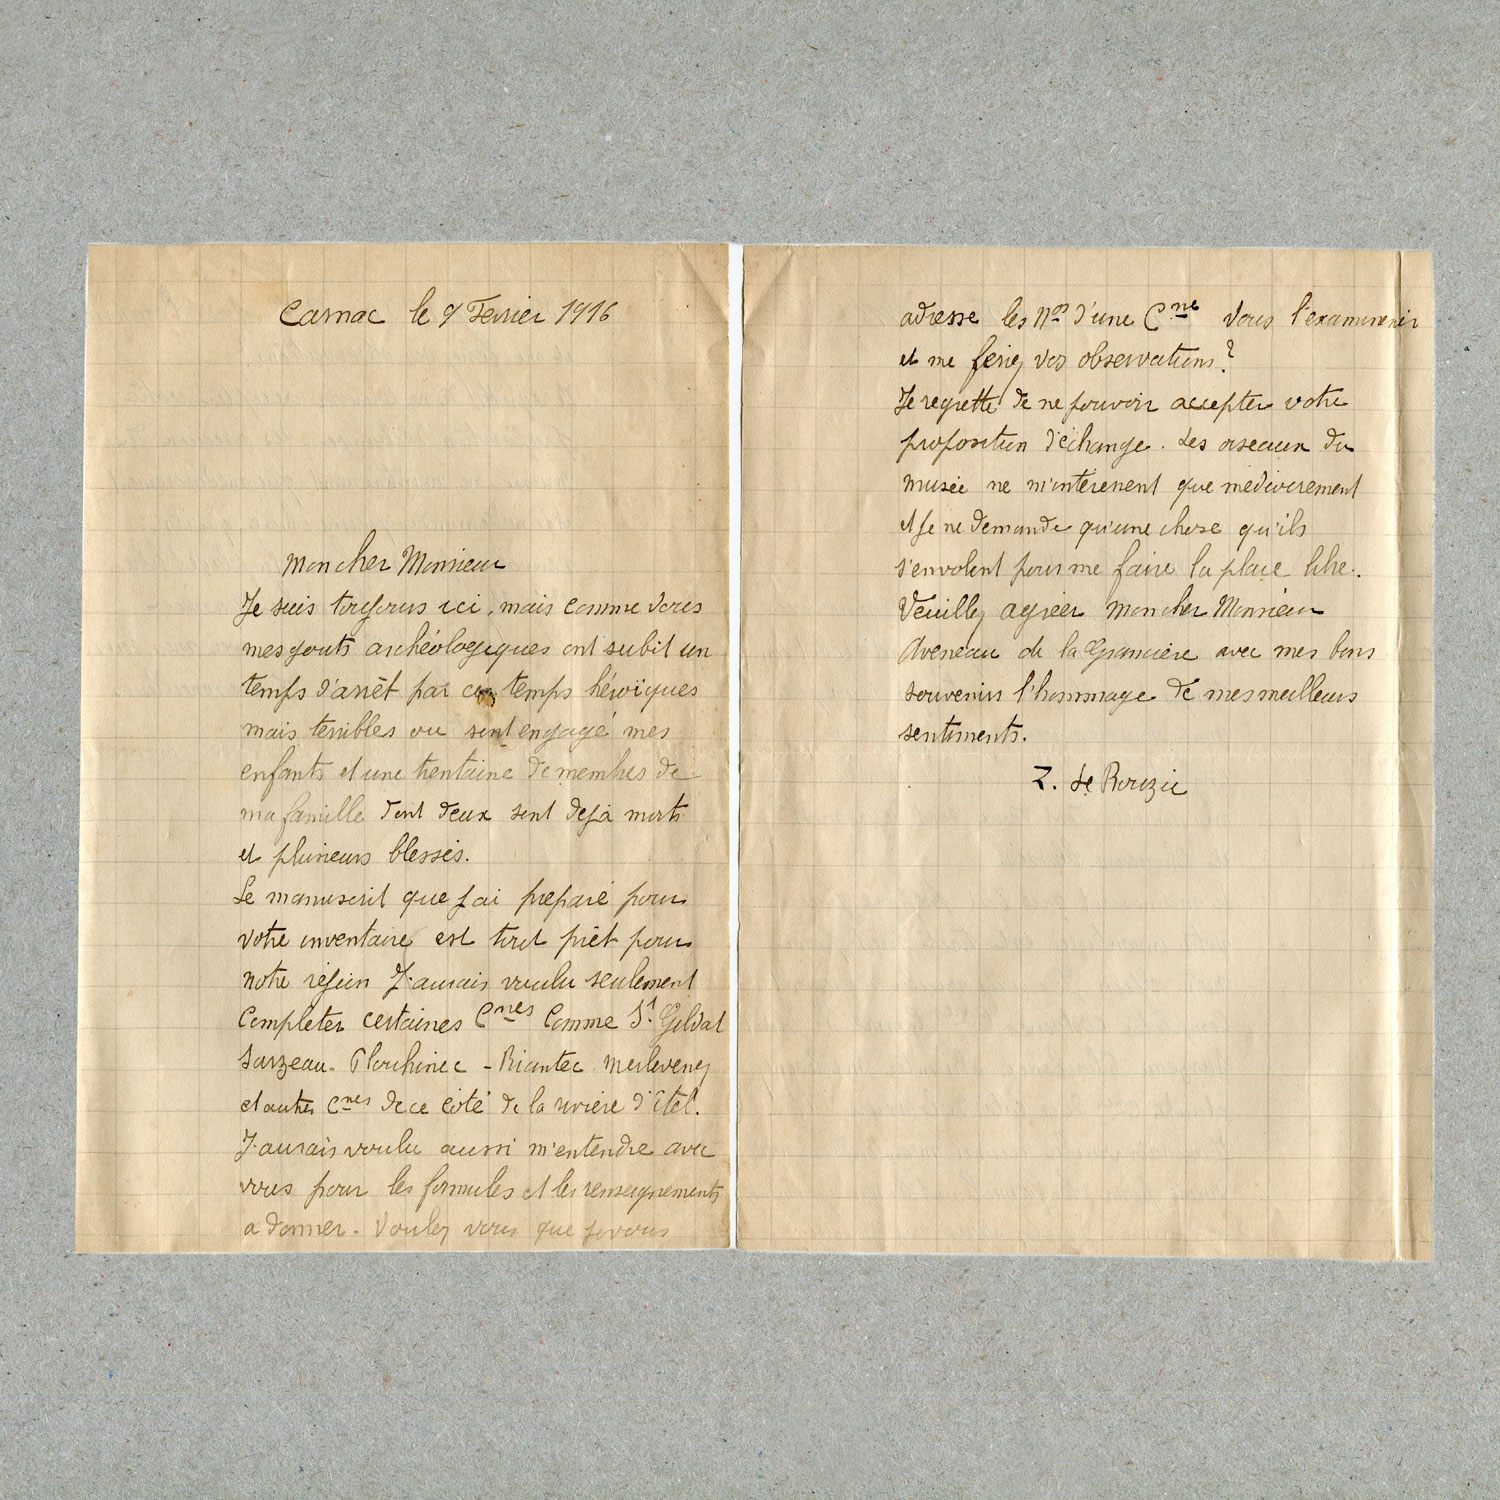 Carnac le 9 Fevrier 1916
Mon cher Monsieur
Je suis toujours ici, mais comme vous
mes gouts archéologiques ont subit un
temps d'arrêt par ces temps héroïques
mais terribles ou sont engagé mes
enfants et une trentaine de membres de
ma famille dont deux sont dejà morts
et plusieurs blessés.
Le manuscrit que j'ai préparé pour
votre inventaire est tout prêt pour
notre région J'aurais voulu seulement
completer certaines Cnes comme St Gildas
Sarzeau. Plouhinec - Riantec Merlevenez
et autres Cnes de ce côté de la rivière d'Etel.
J'aurais voulu aussi m'entendre avec
vous pour les formules et les renseignements
a donner. Voulez vous que je vous
adresse les Nos d'une Cne Vous l'examineriez
et me feriez vos observations ?
Je regrette de ne pouvoir accepter votre
proposition d'échange. Les oiseaux du
musée ne m'intéressent que médiocrement
et je ne demande qu'une chose qu'ils
s'envolent pour me faire la place libre.
Veuillez agréer mon cher Monsieur
Aveneau de la Grancière avec mes bons
souvenirs l'hommage de mes meilleurs
sentiments.
Z. Le Rouzic